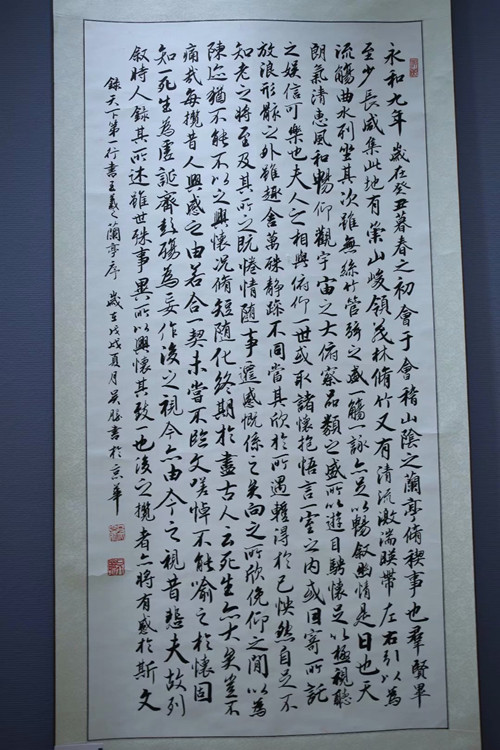 永和九年歲在癸丑暮春之初會于會稽山陰之蘭亭脩稧事也羣賢畢
至少長咸集此地有崇山峻領茂林脩竹又有清流激湍暎帶左右引以為
流觴曲水列坐其次雖無絲竹管弦之盛一觴一詠亦足以暢叙幽情是日也天
朗氣清惠風和暢仰觀宇宙之大俯察品類之盛所以遊目騁懷足以極視聽
之娛信可樂也夫人之相與俯仰一世或取諸懷抱悟言一室之內或因寄所託
放浪形骸之外雖趣舍萬殊靜躁不同當其欣於所遇輙得於己怏然自足不
知老之將至及其所之既惓情隨事遷感慨係之矣向之所欣俛仰之閒以為
陳迹猶不能不以之興懷況脩短隨化終期於盡古人云死生亦大矣豈不
痛哉每攬昔人興感之由若合一契未嘗不臨文嗟悼不能喻之於懷固
知一死生為虛誕齊彭殤為妄作後之視今亦由今之視昔悲夫故列
叙時人錄其所述雖世殊事異所以興懷其致一也後之攬者亦將有感於斯文
錄天下第一行書王羲之蘭亭序 歲在戊戌夏月吳書於京華